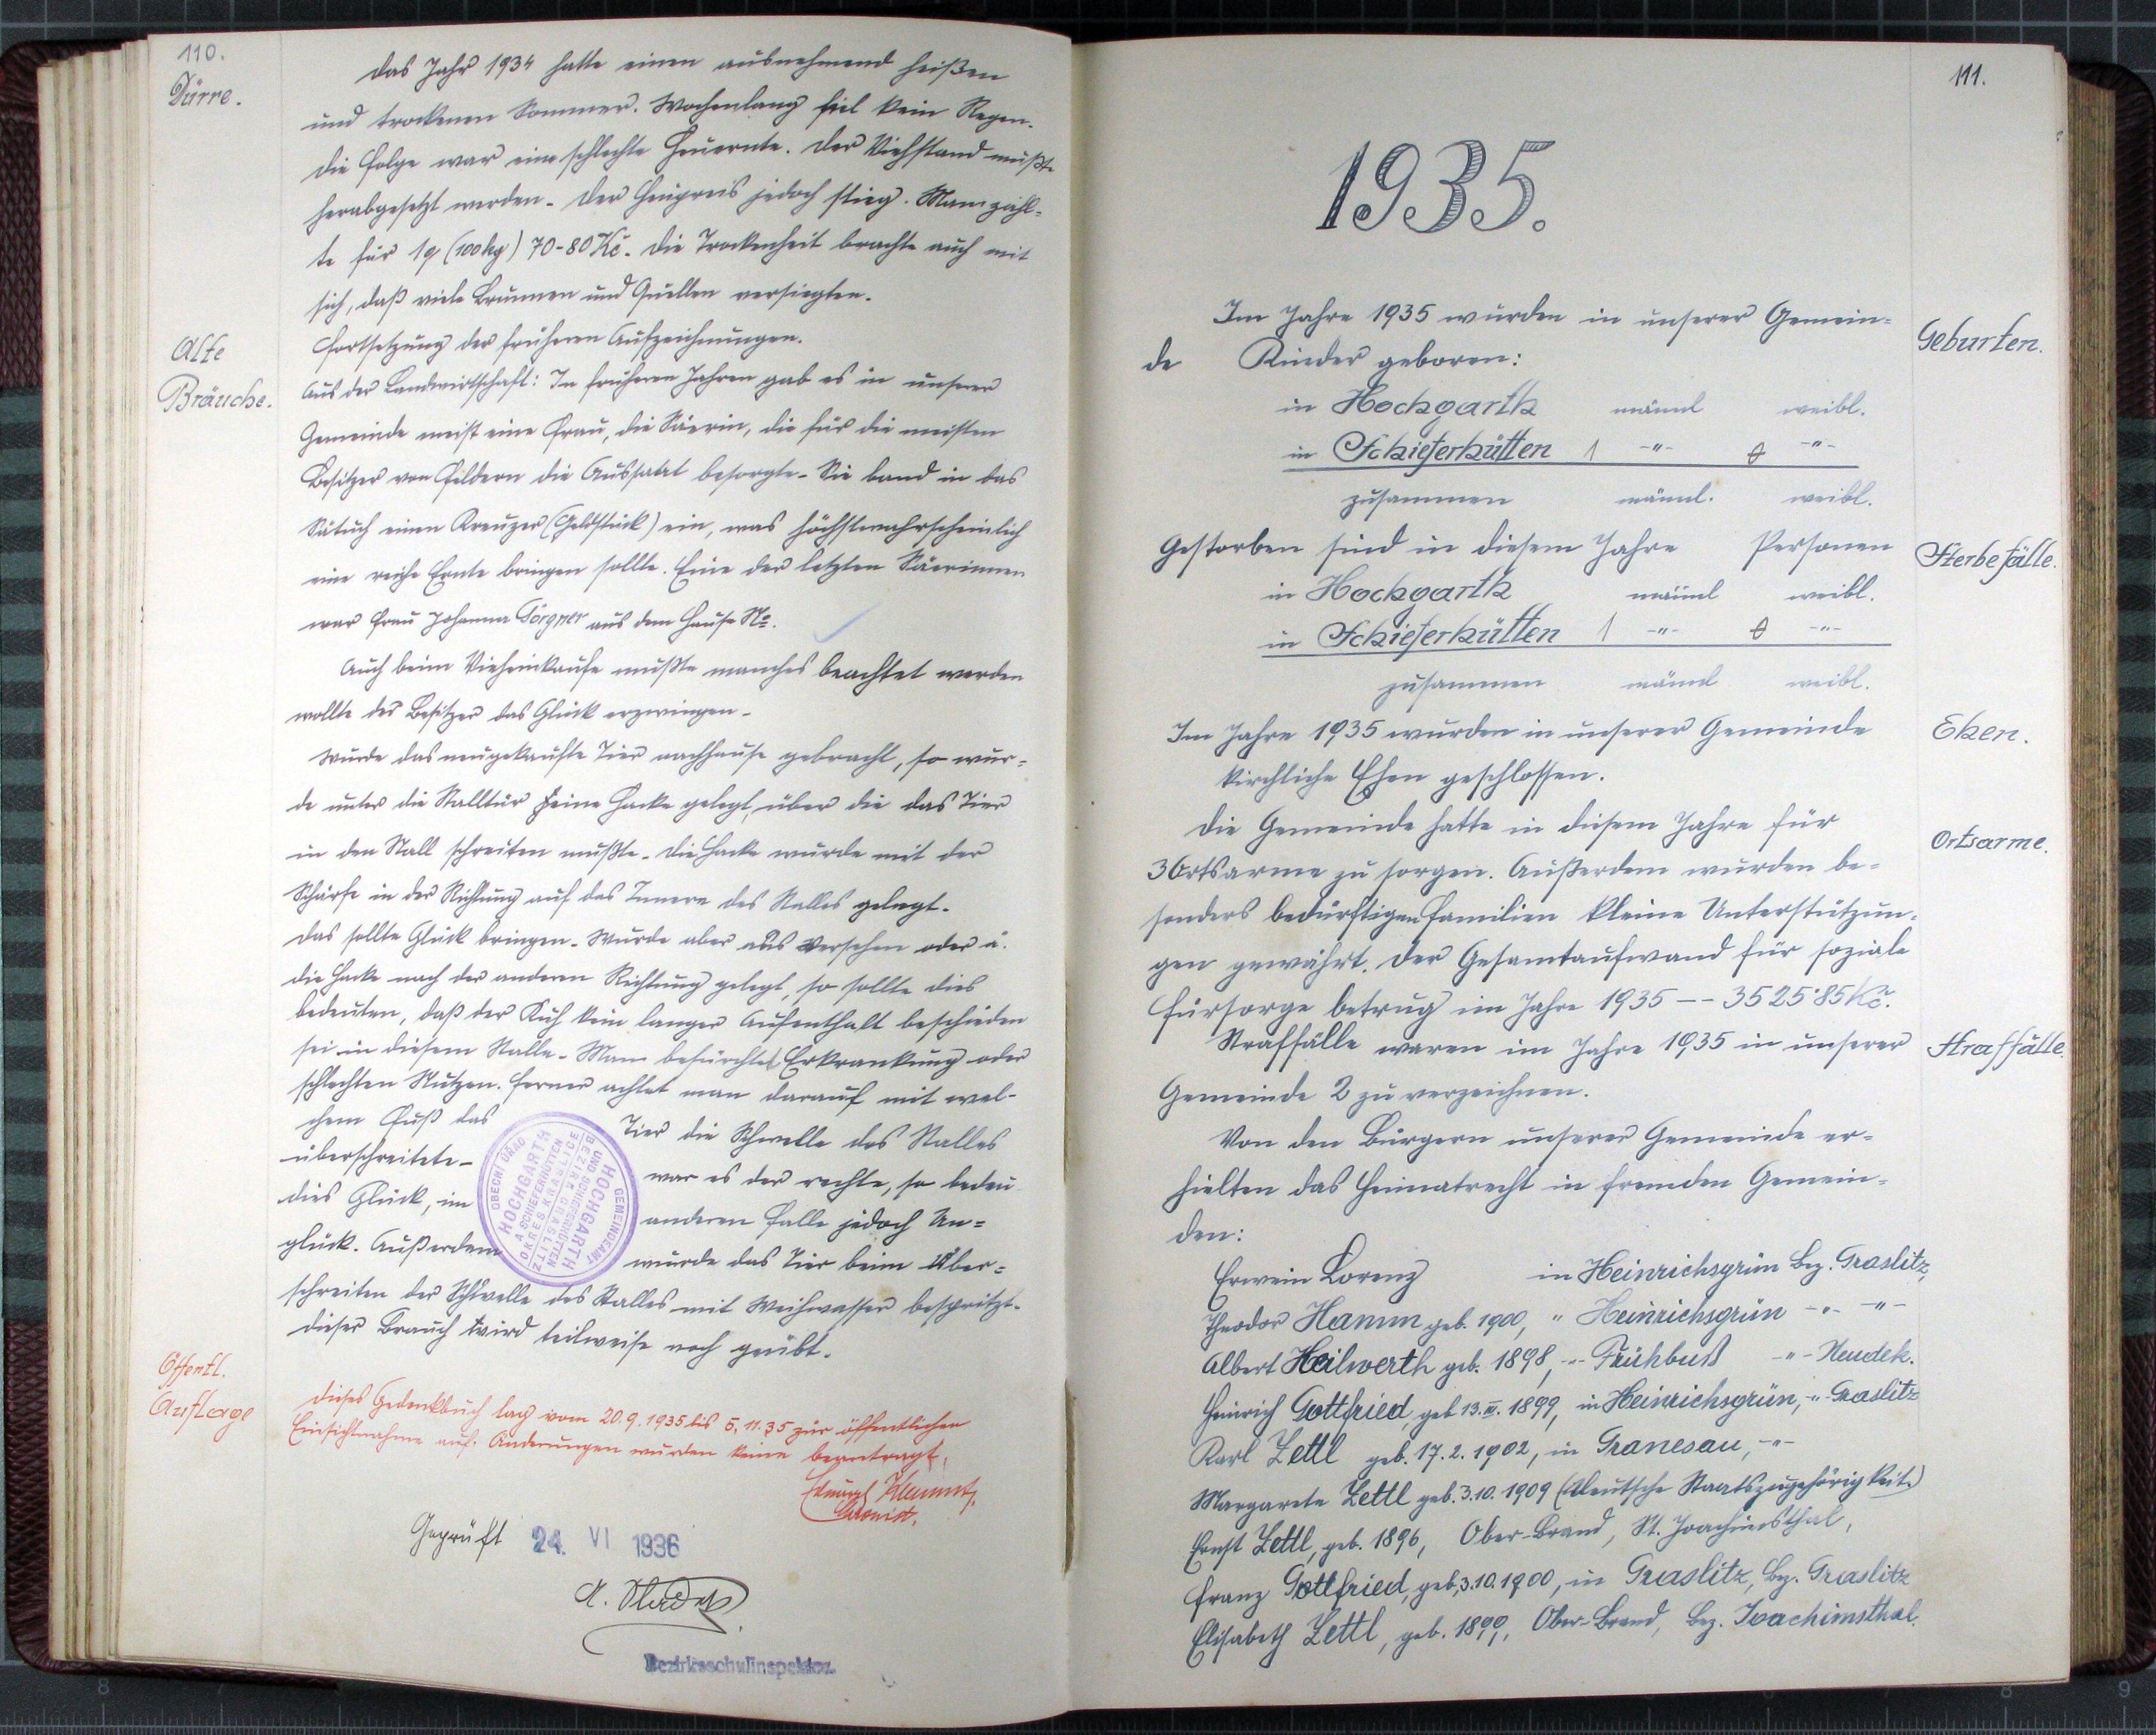 110.
Dürre.
Das Jahr 1934 hatte einen ausnehmend heißen
und trockenen Sommer. Wochenlang fiel kein Regen.
Die Folge war eine schlechte Heuernte. Der Viehstand mußte
herabgesetzt werden. Der Heupreis jedoch stieg. Man zahl-
te für 1q (100kg) 70-80 Kč. Die Trockenheit brachte auch mit
sich, daß viele Brunnen und Quellen versiegten.
Alte
Bräuche.
Fortsetzung der früheren Aufzeichnungen.
Aus der Landwirtschaft: In früheren Jahren gab es in unserer
Gemeinde meist eine Frau, die Säerin, die für die meisten
Besitzer von Feldern die Aussaat besorgte. Sie band in das
Sätuch einen Kreuzer (Geldstück) ein, was höchstwahrscheinlich
eine reiche Ernte bringen sollte. Eine der letzten Säerinnen
war Frau Johanna Görgner aus dem Hause No.
Auch beim Vieheinkaufe mußte manches beachtet werden
wollte der Besitzer das Glück erzwingen.
Wurde das neugekaufte Tier nachhause gebracht, so wur-
de unter die Stalltür eine Hacke gelegt, über die das Tier
in den Stall schreiten mußte. Die Hacke wurde mit der
Schärfe in der Richtung auf das Innere des Stalles gelegt.
Das sollte Glück bringen. Wurde aber aus Versehen oder ä.
die Hacke nach der anderen Richtung gelegt, so sollte dies
bedeuten, daß der Kuh kein langer Aufenthalt beschieden
sei in diesem Stalle. Man befürchtet Erkrankung oder
schlechten Nutzen. Ferner achtet man darauf mit wel-
chem Fuß das Tier die Schwelle des Stalles
überschreitete. war es der rechte, so bedeu
dies Glück, im anderen Falle jedoch Un-
glück. Außerdem wurde das Tier beim Über-
schreiten der Schwelle des Stalles mit Weihwasser bespritzt.
Dieser Brauch wird teilweise noch geübt.
OBECNÍ ÚŘAD
HOCHGARTH
A SCHIEFERHÜTTEN
OKRES KRASLICE
GEMEINDEAMT
HOCHGARTH
UND SCHIEFERHÜTTEN
BEZIRK GRASLITZ
Öffentl.
Auflage
Dieses Gedenkbuch lag vom 20.9.1935 bis 5.11.35 zur öffentlichen
Einsichtnahme auf. Änderungen wurden keine beantragt.
Chronist.
Geprüft 24. VI 1936
Bezirksschulinspektor.
111.
1935.
Geburten.
Im Jahre 1935 wurden in unserer Gemein-
de Kinder geboren:
in Hochgarth männl weibl.
in Schieferhütten 1 -"- 0 -"-
zusammen männl. weibl.
Sterbefälle.
Gestorben sind in diesem Jahre Personen
in Hochgarth männl weibl.
in Schieferhütten 1 -"- 0 -"-
zusammen männl weibl.
Ehen.
Im Jahre 1935 wurden in unserer Gemeinde
kirchliche Ehen geschlossen.
Ortsarme.
Die Gemeinde hatte in diesem Jahre für
3 Ortsarme zu sorgen. Außerdem wurden be-
sonders bedürftigen Familien kleine Unterstützun-
gen gewährt. Der Gesamtaufwand für soziale
Fürsorge betrug im Jahre 1935 -- 3525·85 Kč.
Straffälle.
Straffälle waren im Jahre 1935 in unserer
Gemeinde 2 zu verzeichnen.
Von den Bürgern unserer Gemeinde er-
hielten das Heimatrecht in fremden Gemein-
den:
Erwein Lorenz in Heinrichsgrün Bez. Graslitz,
Theodor Hamm geb. 1900, " Heinrichsgrün -"- -"-
Albert Heilwerth geb. 1898, -"- Frühbuß -"- Neudek.
Heinrich Gottfried, geb 13. III. 1899, in Heinrichsgrün, -"- Graslitz
Karl Zettl geb. 17.2.1902, in Granesau, -"-
Margareta Zettl geb. 3.10.1909 (deutsche Staatszugehörigkeit)
Ernst Zettl, geb. 1896, Ober-Brand, St. Joachimsthal,
Franz Gottfried, geb, 3.10.1900, in Graslitz, Bez. Graslitz
Elisabeth Zettl, geb. 1899, Ober-Brand, Bez. Joachimsthal.